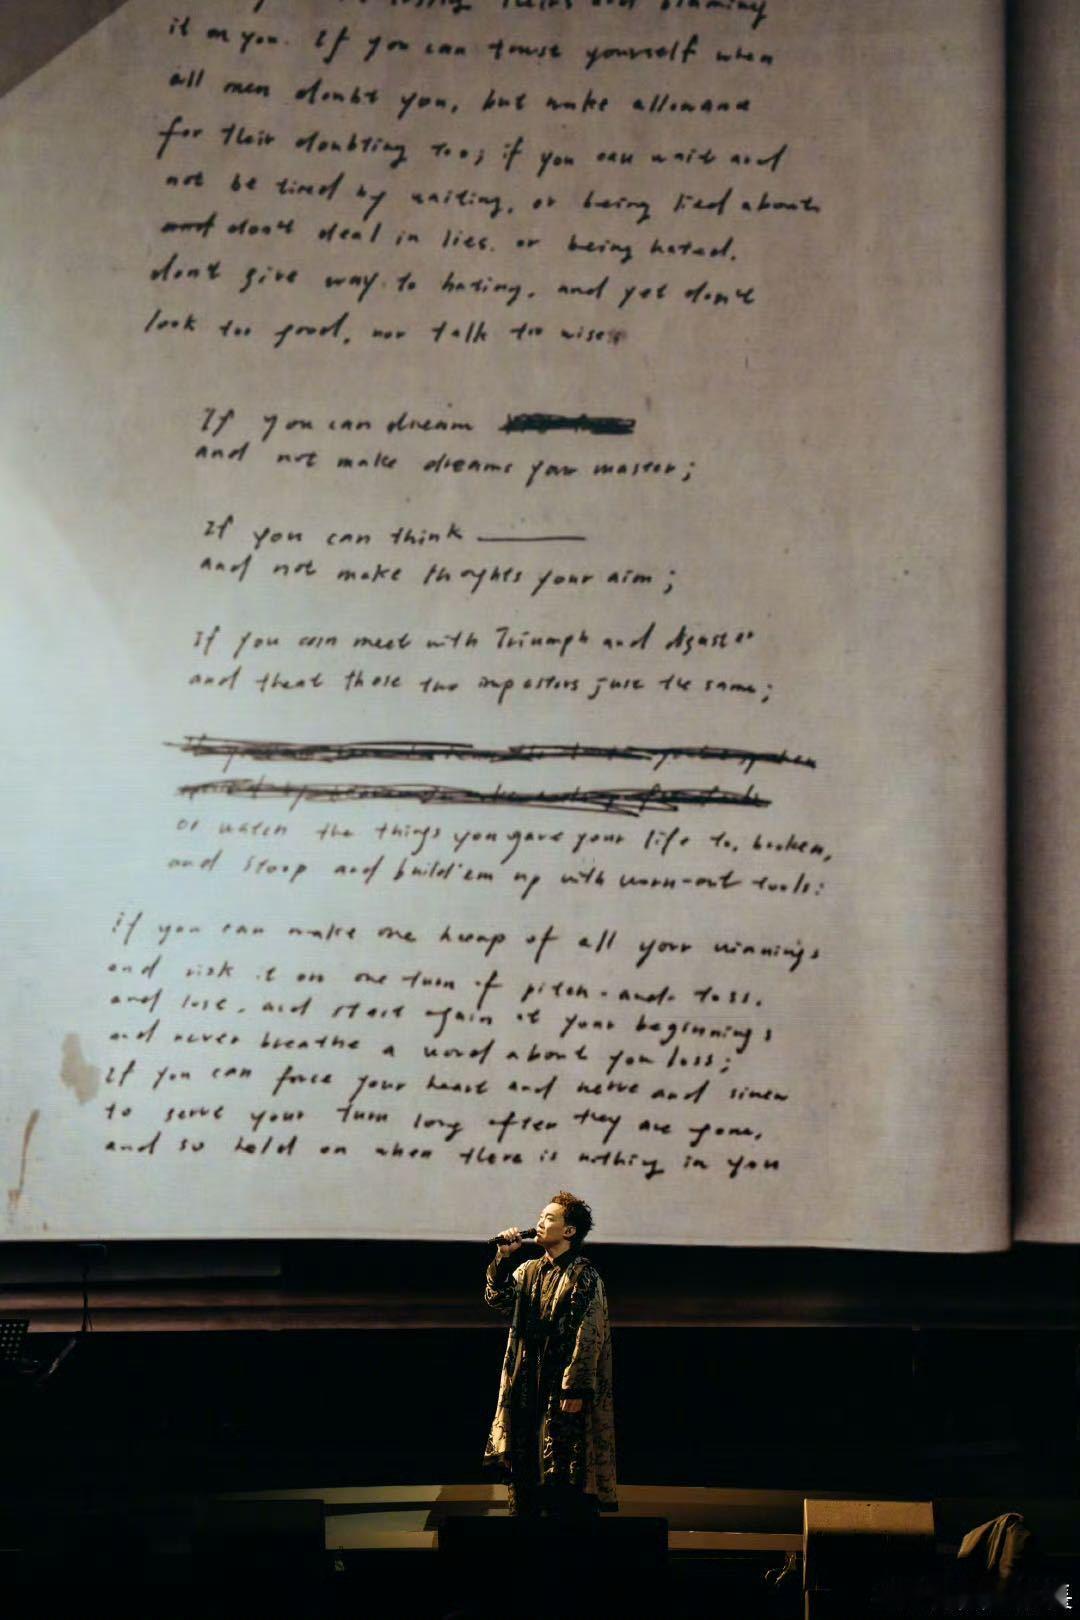 losing theirs and blaming
it on you. If you can trust yourself when
all men doubt you, but make allowance
for their doubting too; if you can wait and
not be tired by waiting, or being lied about
and don't deal in lies. or being hated,
don't give way to hating, and yet don't
look too good, nor talk too wise
If you can dream
and not make dreams your master;
If you can think
and not make thoghts your aim;
If you can meet with Triumph and
and treat those two impostors just the same;
or watch the things you gave your life to, broken,
and stoop and build'em up with worn-out tools:
if you can make one heap of all your winnings
and risk it on one turn of pitch-and-toss.
and lose, and start again at your beginnings
and never breathe a word about you loss;
If you can force your heart and nerve and sinew
to serve your turn long after they are gone,
and so hold on when there is nothing in you